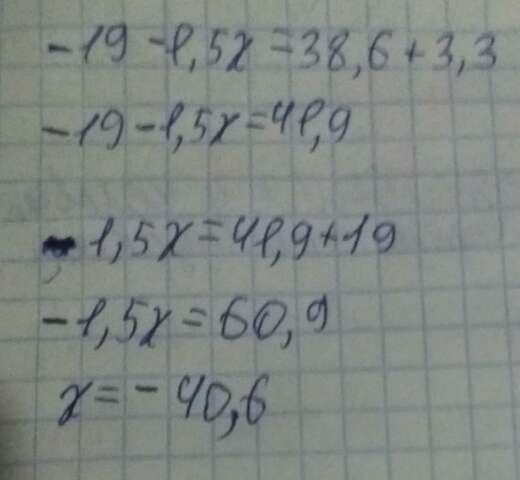 -19-1,5x=38,6+3,3
-19-1,5x=41,9
-1,5x=41,9+19
-1,5x=60,9
x=-40,6